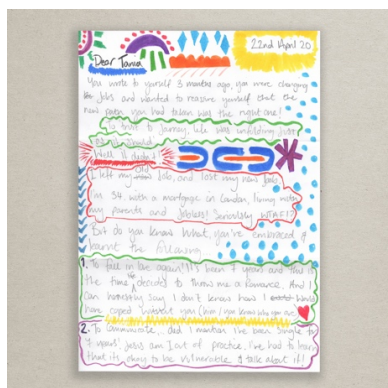 22nd April 20
Dear Tania
You wrote to yourself 3 months ago, you were changing
jobs and wanted to reassure yourself that the
new path you had taken was the right one!
To trust to Journey, life was unfolding just
as it should.
Well it didn't
I left my old Job, and lost my new Job.
I'm 34 with a mortgage in London, living with
my parents and Jobless! Seriously WTAF!?
But do you know What, you've embraced &
learnt the following
1. To fall in love again! It's been 7 years and this is
the time decided to throw me a Romance. And I
can honestly say I don't know how I would
have coped without you (him) you know who you are
2. To Communicate, did I mention I've been Single for
7 years! Just am out of practice. I've had to learn
that its okay to be vulnerable & talk about it!